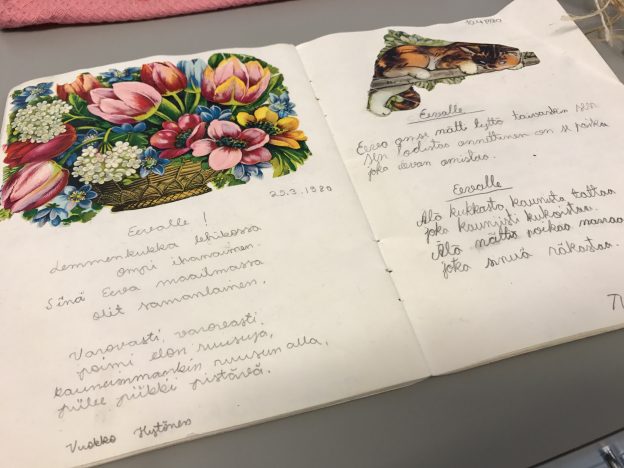 25.3.1980
Eevalle!
Lemmenkukka lehdossa
ompi ihanainen.
Sinä Eeva maailmassa
olit samanlainen.
Varovasti, varovasti
poimi elon ruusuja,
kauneimmankin ruusun alla,
piilee piikki pistävä.
Vuokko Hytönen
Eevalle
Eeva on se nätti tyttö taivaskin sen
sen todistaa onnellinen on se poika
joka Eevan omistaa.
Eevalle
Älä kukkasta kaunista tattaa
joka kauniisti kukoistaa.
Älä nättiä poikaa narraa
joka sinua rakastaa.